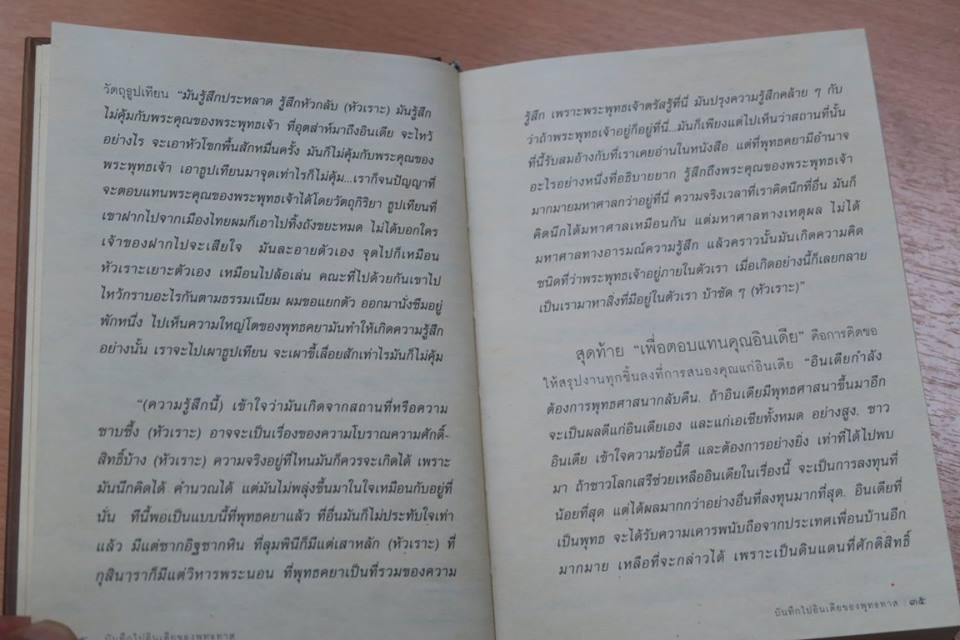 วัตถุธูปเทียน “มันรู้สึกประหลาด รู้สึกหัวกลับ (หัวเราะ) มันรู้สึก
ไม่คุ้มกับพระคุณของพระพุทธเจ้า ที่อุตส่าห์มาถึงอินเดีย จะไหว้
อย่างไร จะเอาหัวโขกพื้นสักหมื่นครั้ง มันก็ไม่คุ้มกับพระคุณของ
พระพุทธเจ้า เอาธูปเทียนมาจุดเท่าไรก็ไม่คุ้ม...เราก็จนปัญญาที่
จะตอบแทนพระคุณของพระพุทธเจ้าได้โดยวัตถุกิริยา ธูปเทียนที่
เขาฝากไปจากเมืองไทยผมก็เอาไปทิ้งถังขยะหมด ไม่ได้บอกใคร
เจ้าของฝากไปจะเสียใจ มันละอายตัวเอง จุดไปก็เหมือน
หัวเราะเยาะตัวเอง เหมือนไปล้อเล่น คณะที่ไปด้วยกันเขาไป
ไหว้กราบอะไรกันตามธรรมเนียม ผมขอแยกตัว ออกมานั่งซึมอยู่
พักหนึ่ง ไปเห็นความใหญ่โตของพุทธคยามันทำให้เกิดความรู้สึก
อย่างนั้น เราจะไปเผาธูปเทียน จะเผาขี้เลื่อยสักเท่าไรมันก็ไม่คุ้ม
“(ความรู้สึกนี้) เข้าใจว่ามันเกิดจากสถานที่หรือความ
ซาบซึ้ง (หัวเราะ) อาจจะเป็นเรื่องของความโบราณความศักดิ์-
สิทธิ์บ้าง (หัวเราะ) ความจริงอยู่ที่ไหนมันก็ควรจะเกิดได้ เพราะ
มันนึกคิดได้ คำนวณได้ แต่มันไม่พลุ่งขึ้นมาในใจเหมือนกับอยู่ที่
นั่น ทีนี้พอเป็นแบบนี้ที่พุทธคยาแล้ว ที่อื่นมันก็ไม่ประทับใจเท่า
แล้ว มีแต่ซากอิฐซากหิน ที่ลุมพินีก็มีแต่เสาหลัก (หัวเราะ) ที่
กุสินาราก็มีแต่วิหารพระนอน ที่พุทธคยาเป็นที่รวมของความ
บันทึกไปอินเดียของพุทธทาส
รู้สึก เพราะพระพุทธเจ้าตรัสรู้ที่นี่ มันปรุงความรู้สึกคล้าย ๆ กับ
ว่าถ้าพระพุทธเจ้าอยู่ก็อยู่ที่นี่...มันก็เพียงแต่ไปเห็นว่าสถานที่นั้น
ที่นี้รับสมอ้างกับที่เราเคยอ่านในหนังสือ แต่ที่พุทธคยามีอำนาจ
อะไรอย่างหนึ่งที่อธิบายยาก รู้สึกถึงพระคุณของพระพุทธเจ้า
มากมายมหาศาลกว่าอยู่ที่นี่ ความจริงเวลาที่เราคิดนึกที่อื่น มันก็
คิดนึกได้มหาศาลเหมือนกัน แต่มหาศาลทางเหตุผล ไม่ได้
มหาศาลทางอารมณ์ความรู้สึก แล้วคราวนั้นมันเกิดความคิด
ชนิดที่ว่าพระพุทธเจ้าอยู่ภายในตัวเรา เมื่อเกิดอย่างนี้ก็เลยกลาย
เป็นเรามาหาสิ่งที่มีอยู่ในตัวเรา บ้าชัด ๆ (หัวเราะ)”
สุดท้าย “เพื่อตอบแทนคุณอินเดีย” คือการคิดขอ
ให้สรุปงานทุกชิ้นลงที่การสนองคุณแก่อินเดีย “อินเดียกำลัง
ต้องการพุทธศาสนากลับคืน. ถ้าอินเดียมีพุทธศาสนาขึ้นมาอีก
จะเป็นผลดีแก่อินเดียเอง และแก่เอเชียทั้งหมด อย่างสูง. ชาว
อินเดีย เข้าใจความข้อนี้ดี และต้องการอย่างยิ่ง เท่าที่ได้ไปพบ
มา ถ้าชาวโลกเสรีช่วยเหลืออินเดียในเรื่องนี้ จะเป็นการลงทุนที่
น้อยที่สุด แต่ได้ผลมากกว่าอย่างอื่นที่ลงทุนมากที่สุด. อินเดียที่
เป็นพุทธ จะได้รับความเคารพนับถือจากประเทศเพื่อนบ้านอีก
มากมาย เหลือที่จะกล่าวได้ เพราะเป็นดินแดนที่ศักดิ์สิทธิ์
บันทึกไปอินเดียของพุทธทาส | ๓๕